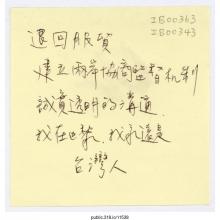 IB00363
IB00343
退回服貿
建立兩岸協商監督机制
誠實透明的溝通
我在巴黎、我永遠是
台灣人
public.318.io/11538